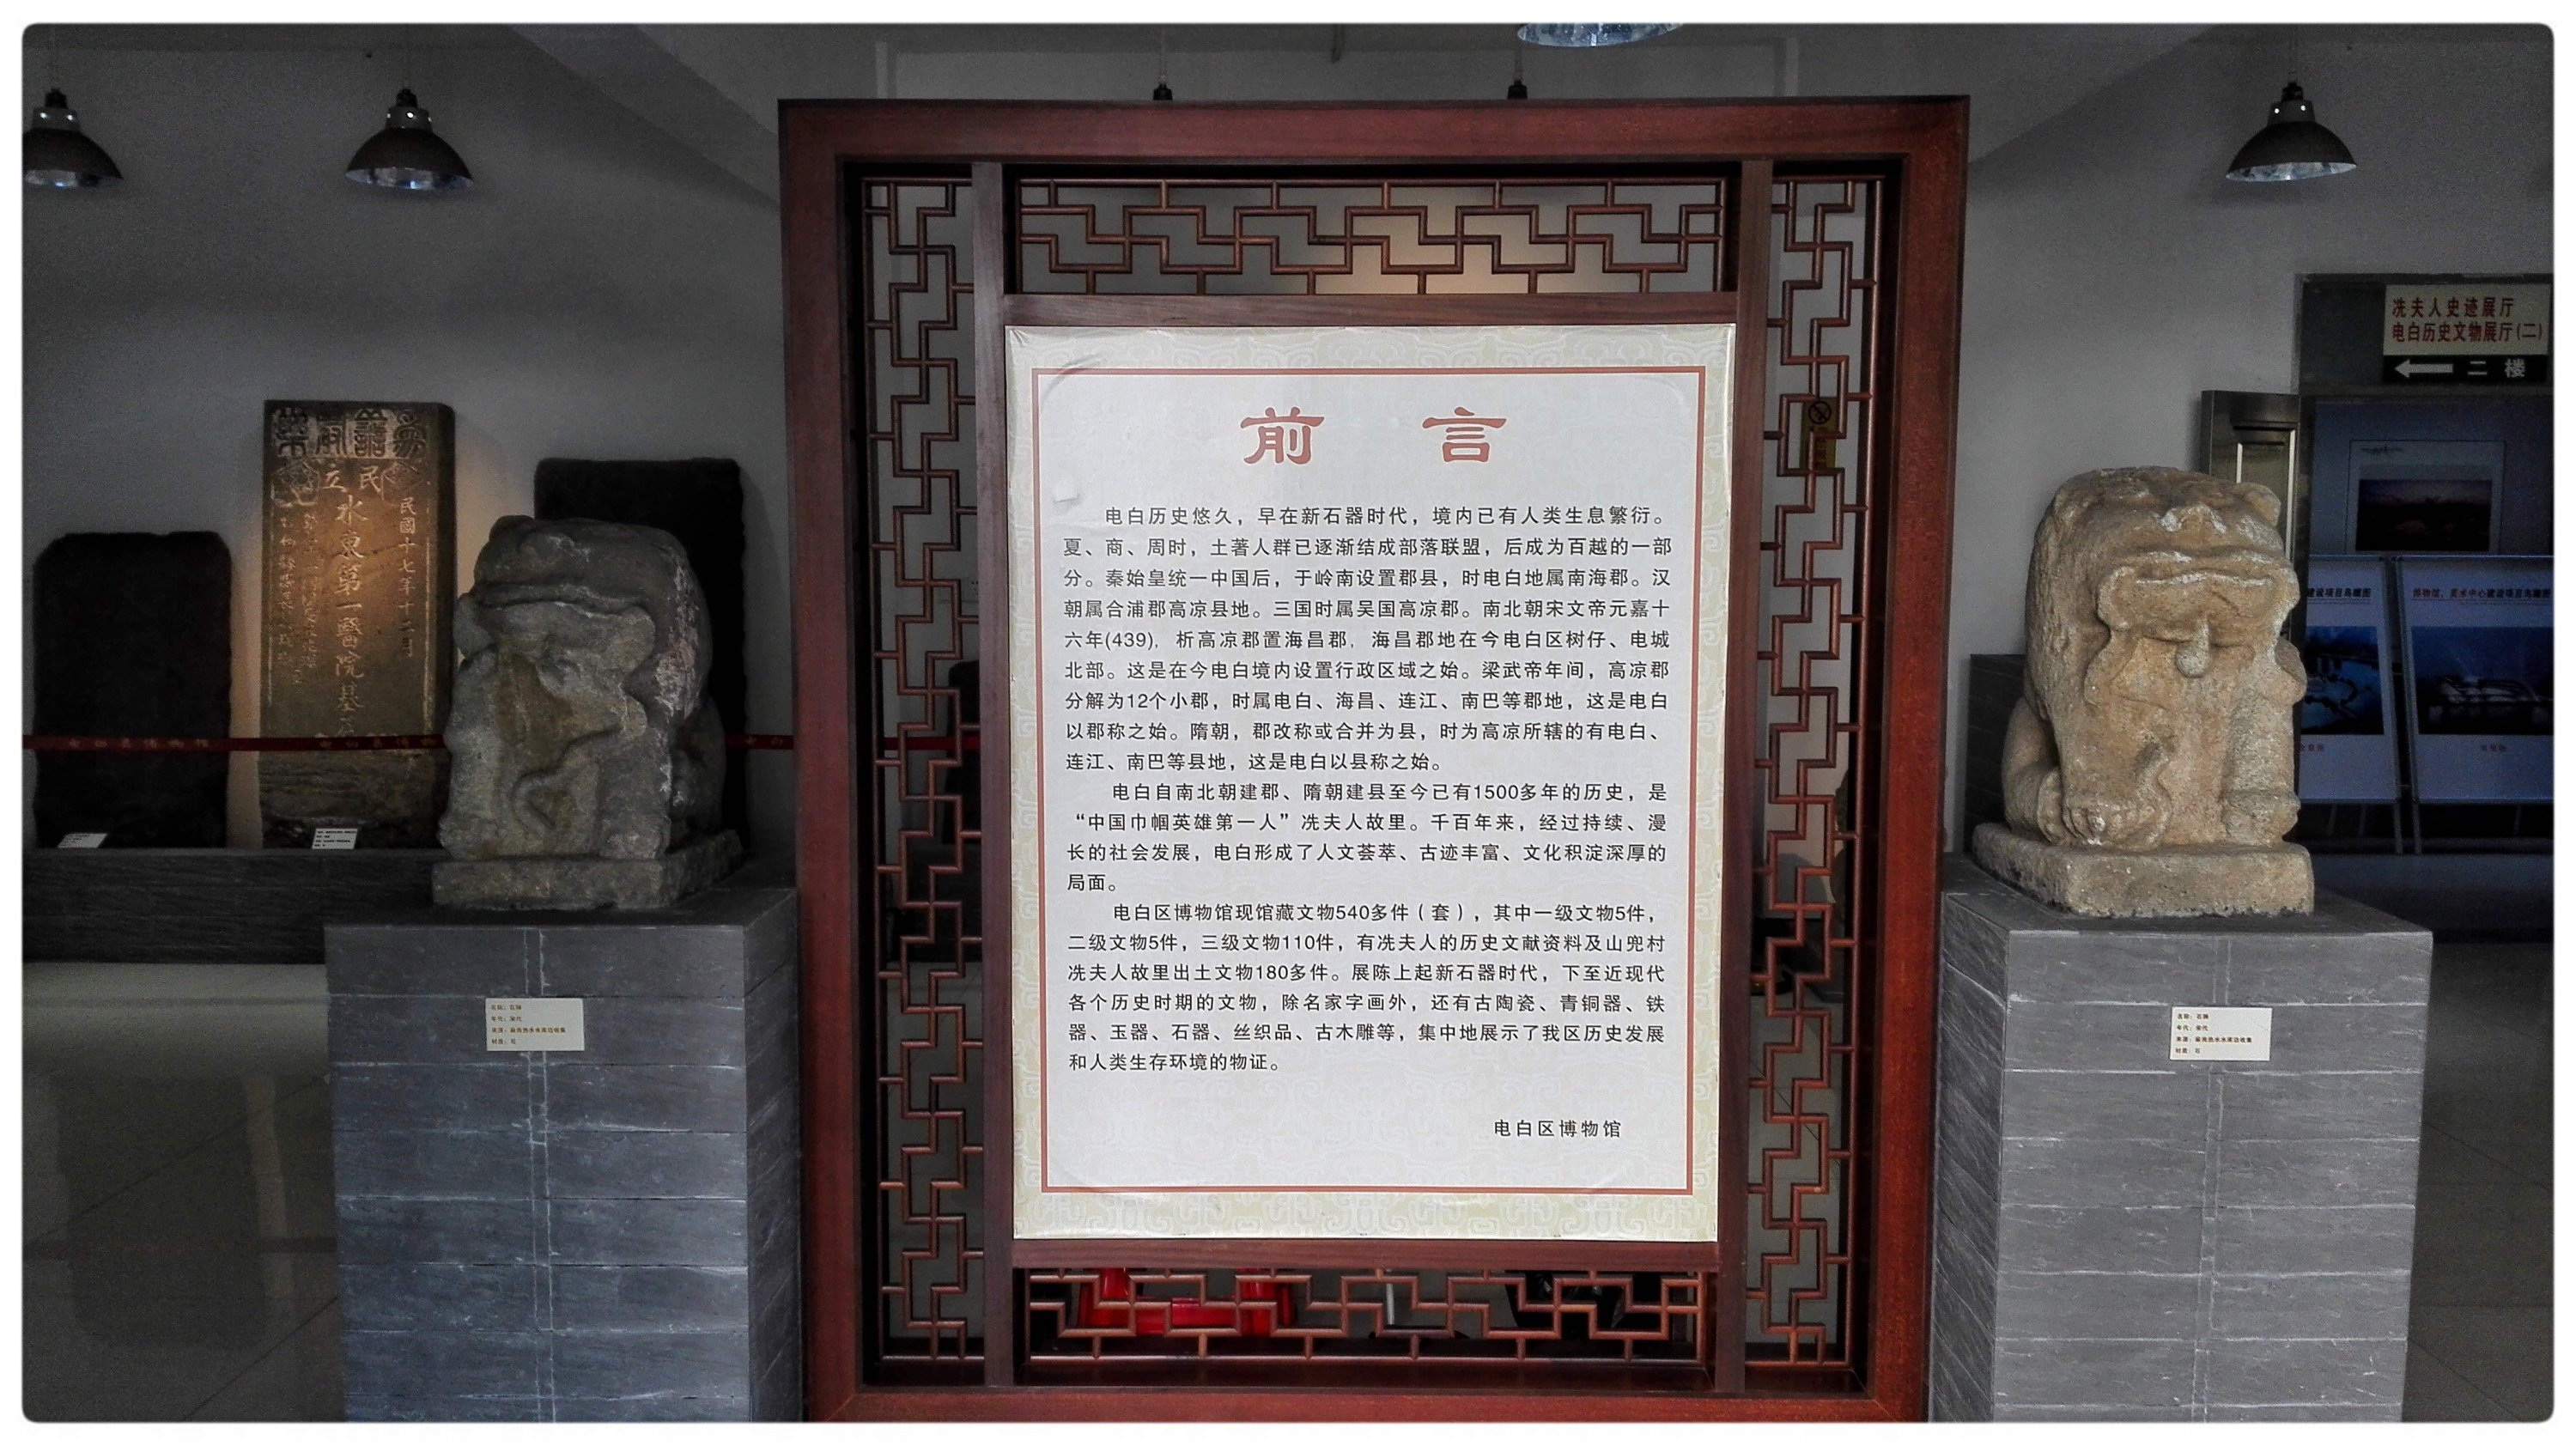 前 言
电白历史悠久，早在新石器时代，境内已有人类生息繁衍。
夏、商、周时，土著人群已逐渐结成部落联盟，后成为百越的一部
分。秦始皇统一中国后，于岭南设置郡县，时电白地属南海郡。汉
朝属合浦郡高凉县地。三国时属吴国高凉郡。南北朝宋文帝元嘉十
六年(439)，析高凉郡置海昌郡，海昌郡地在今电白区树仔、电城
北部。这是在今电白境内设置行政区域之始。梁武帝年间，高凉郡
分解为12个小郡，时属电白、海昌、连江、南巴等郡地，这是电白
以郡称之始。隋朝，郡改称或合并为县，时为高凉所辖的有电白、
连江、南巴等县地，这是电白以县称之始。
电白自南北朝建郡、隋朝建县至今已有1500多年的历史，是
“中国巾帼英雄第一人”冼夫人故里。千百年来，经过持续、漫
长的社会发展，电白形成了人文荟萃、古迹丰富、文化积淀深厚的
局面。
电白区博物馆现馆藏文物540多件（套），其中一级文物5件，
二级文物5件，三级文物110件，有冼夫人的历史文献资料及山兜村
冼夫人故里出土文物180多件。展陈上起新石器时代，下至近现代
各个历史时期的文物，除名家字画外，还有古陶瓷、青铜器、铁
器、玉器、石器、丝织品、古木雕等，集中地展示了我区历史发展
和人类生存环境的物证。
电白区博物馆
冼夫人史迹展厅
电白历史文物展厅(二)
二 楼
民國十七年十二月
民立
水東第一醫院基
建设项目鸟瞰图
博物馆、美术中心建设项目鸟瞰图
电白县博物馆
材质：石
材质：石